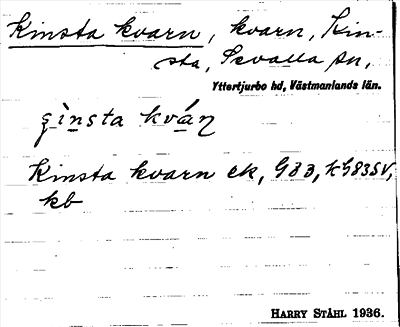 Kinsta kvarn, kvarn, Kin-
sta, Sevalla sn,
Yttertjurbo hd, Västmanlands län.
Kinsta kvarn ek, G83, kG83SV,
kb
HARRY STÅHL 1936.